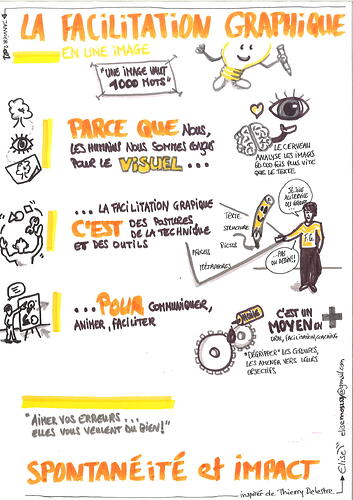 LA FACILITATION GRAPHIQUE
EN UNE IMAGE
"UNE IMAGE VAUT
1000 MOTS"
PARCE QUE NOUS,
LES HUMAINS NOUS SOMMES CONÇUS
POUR LE VISUEL ...
LE CERVEAU
ANALYSE LES IMAGES
60 000 FOIS PLUS VITE
QUE LE TEXTE.
... LA FACILITATION GRAPIQUE
C'EST DES POSTURES
DE LA TECHNIQUE
ET DES OUTILS
TEXTE
STRUCTURE
PICTOS
PROCESS
MÉTAPHORES
JE SUIS
AU SERVICE
DU GROUPE
F.G.
...PAS
DU DESSIN!!
...POUR COMMUNIQUER,
ANIMER, FACILITER
C'EST UN
MOYEN EN +
ORAL, FACILITATION, COACHING
"DÉGRIPPER" LES GROUPES,
LES AMENER VERS LEURS
OBJECTIFS.
"AIMER VOS ERREURS...
ELLES VOUS VEULENT DU BIEN!"
SPONTANÉITÉ et IMPACT
inspirée de Thierry Delestre